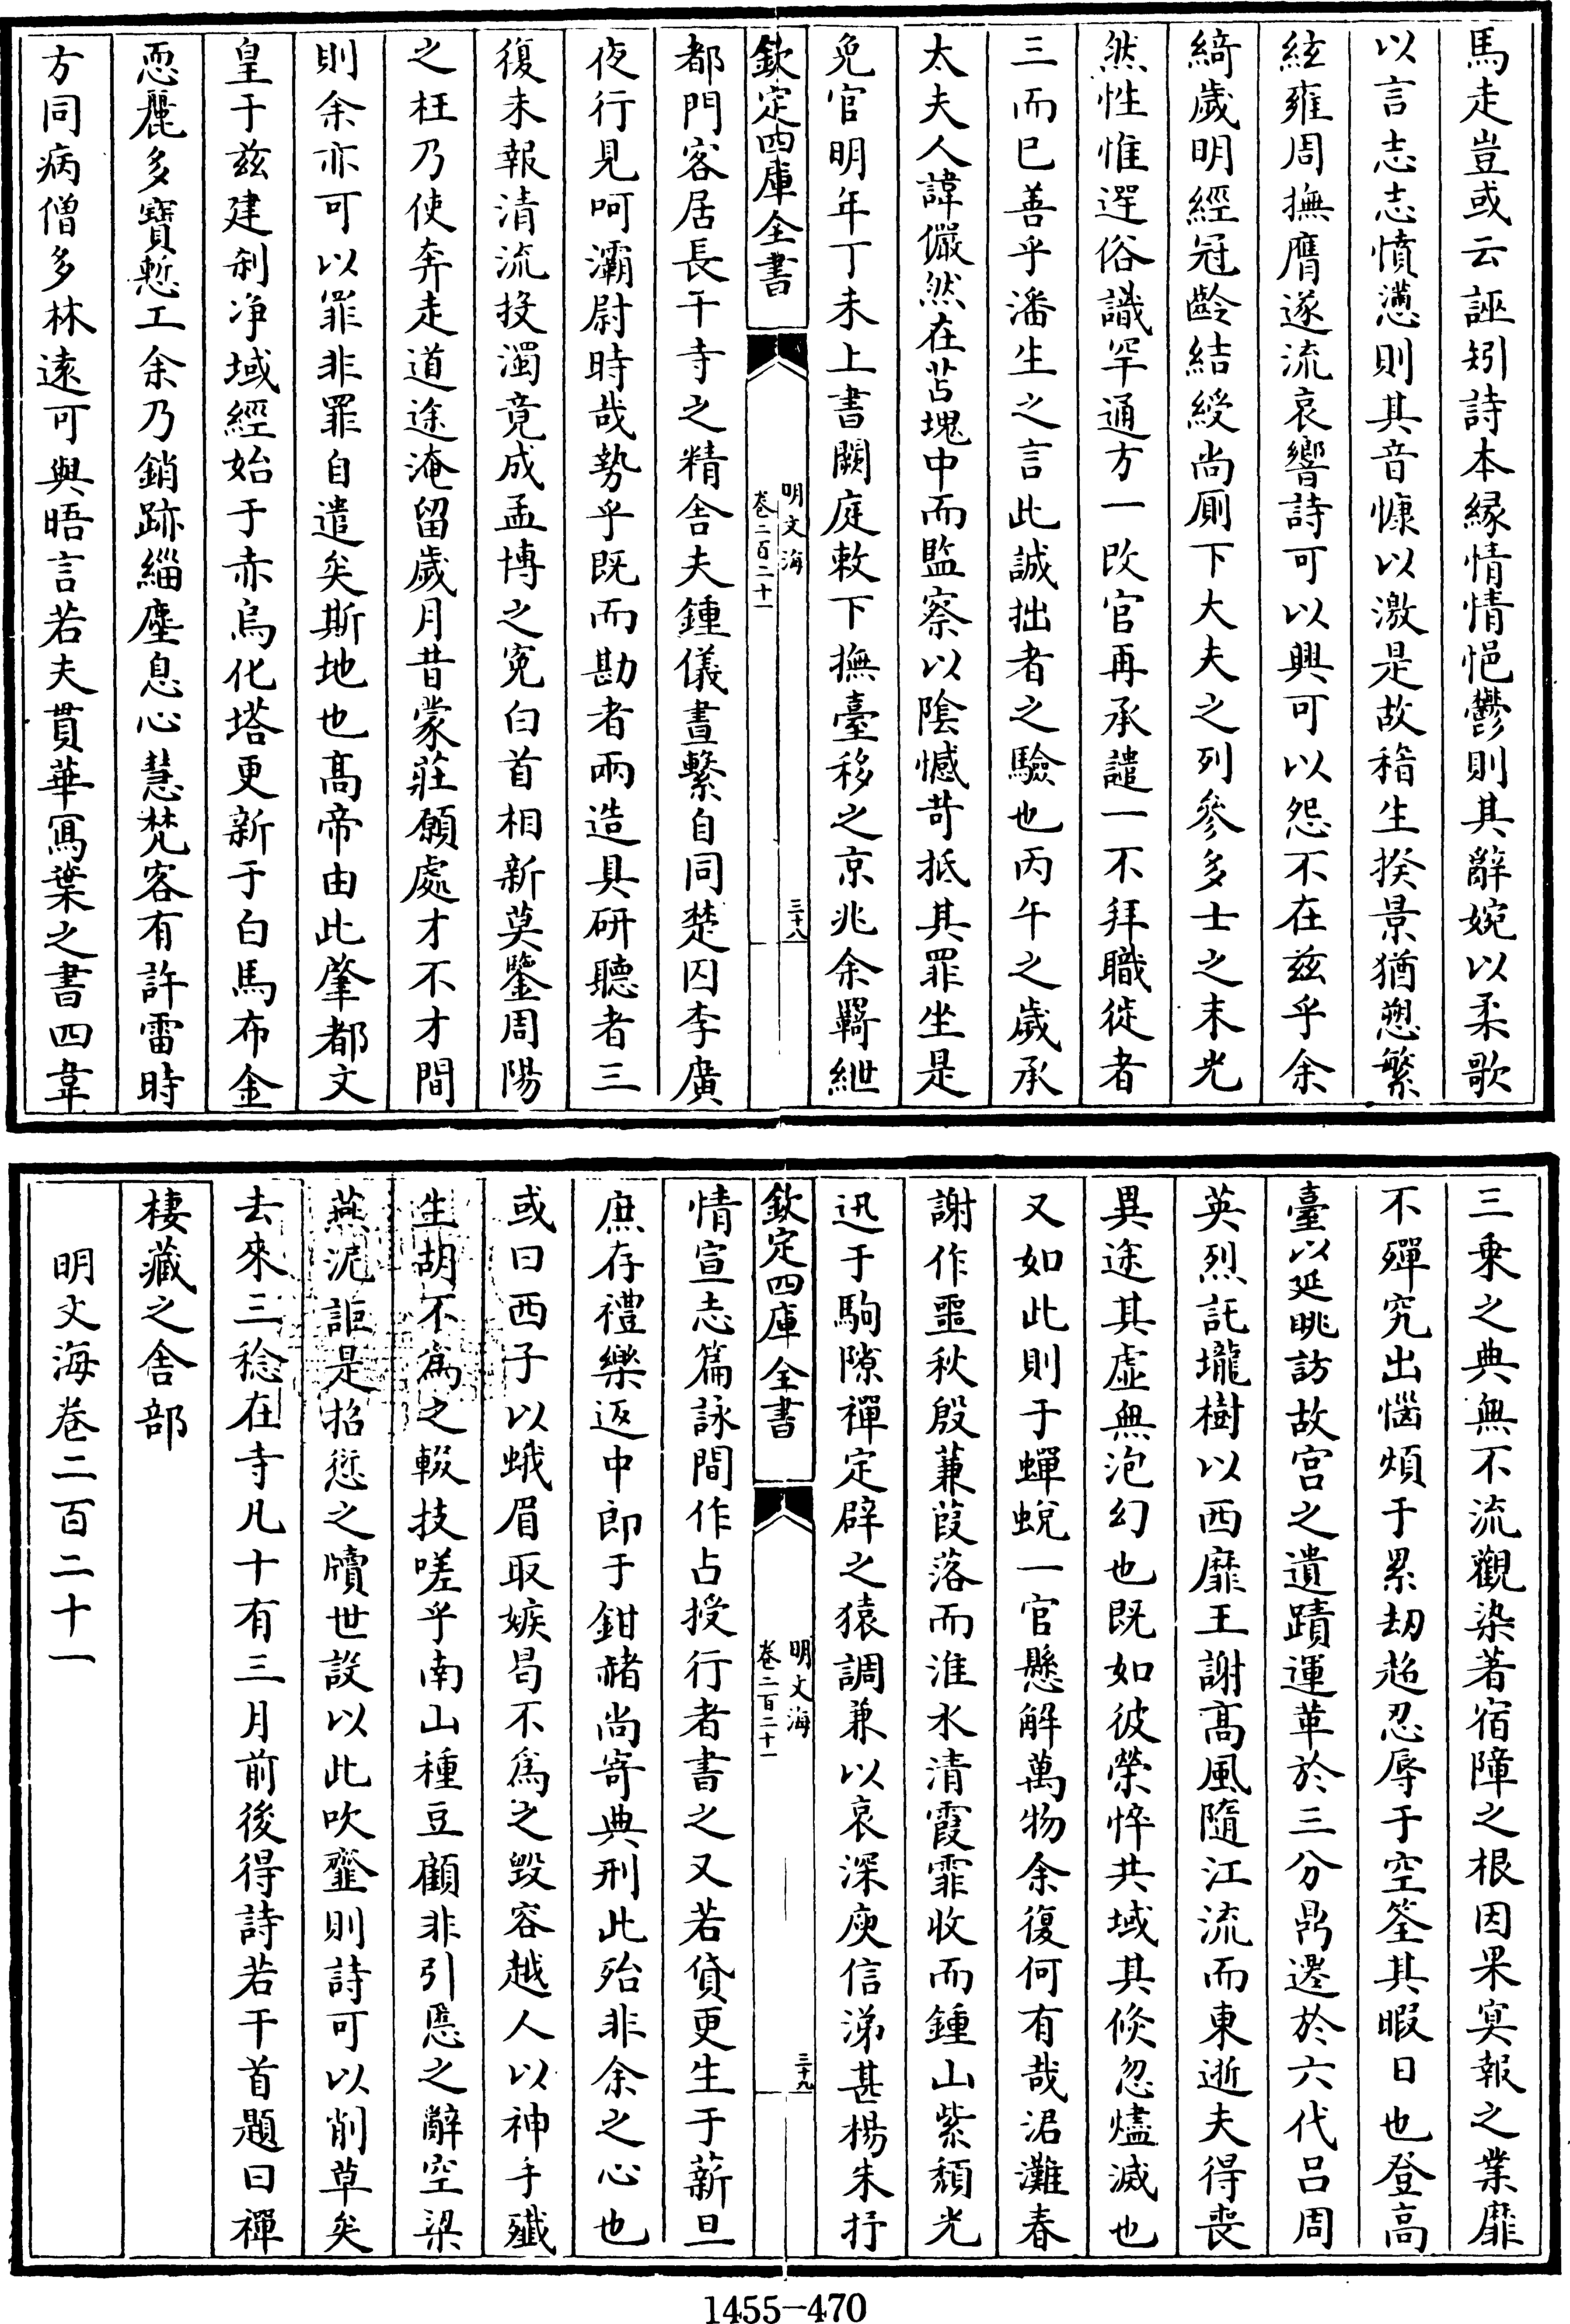 馬走豈或云誣矧詩本緣情情悒鬱則其辭婉以柔歌
以言志志憤懣則其音慷以激是故稽生揆景猶愬繁
絃雍周撫膺遂流哀響詩可以興可以怨不在兹乎余
綺歲明經冠齡結綬尚厠下大夫之列參多士之末光
然性惟逕俗識罕通方一改官再承譴一不拜職徙者
三而已善乎潘生之言此誠拙者之驗也丙午之歲承
太夫人諱儼然在苫塊中而監察以陰憾苛抵其罪坐是
免官明年丁未上書闕庭敕下撫臺移之京兆余羇紲
欽定四庫全書
明文海
卷二百二十一
三十八
都門客居長干寺之精舍夫鍾儀晝繫自同楚囚李廣
夜行見呵灞尉時哉勢乎既而勘者兩造具研聽者三
復未報清流投濁竟成孟博之寃白首相新莫鑒周陽
之枉乃使奔走道途淹留歲月昔蒙莊願處才不才間
則余亦可以罪非罪自遣矣斯地也髙帝由此肇都文
皇于兹建刹净域經始于赤烏化塔更新于白馬布金
恧麗多寶慙工余乃銷跡緇塵息心慧梵客有許雷時
方同病僧多林遠可與晤言若夫貫華寫葉之書四韋
三乗之典無不流觀染著宿障之根因果㝠報之業靡
不殫究出惱煩于累刼超忍辱于空筌其暇日也登高
臺以延眺訪故宫之遺蹟運革於三分鼎遷於六代吕周
英烈託壠樹以西靡王謝髙風隨江流而東逝夫得喪
異途其虛無泡幻也既如彼榮悴共域其倐忽燼滅也
又如此則于蟬蛻一官懸解萬物余復何有哉涒灘春
謝作噩秋殷蒹葭落而淮水清霞霏收而鍾山紫頽光
迅于駒隙禪定辟之猿調兼以哀深庾信涕甚楊朱抒
欽定四庫全書
明文海
卷二百二十一
三十九
情宣志篇詠間作占授行者書之又若貸更生于薪旦
庶存禮樂返中郎于鉗赭尚寄典刑此殆非余之心也
或曰西子以蛾眉取嫉曷不爲之毁容越人以神手殱
生胡不爲之輟技嗟乎南山種豆顧非引慝之辭空梁
燕泥詎是招愆之牘世設以此吹韲則詩可以削草矣
去來三稔在寺凡十有三月前後得詩若干首題曰禪
棲藏之舍部
明文海卷二百二十一
1455—470